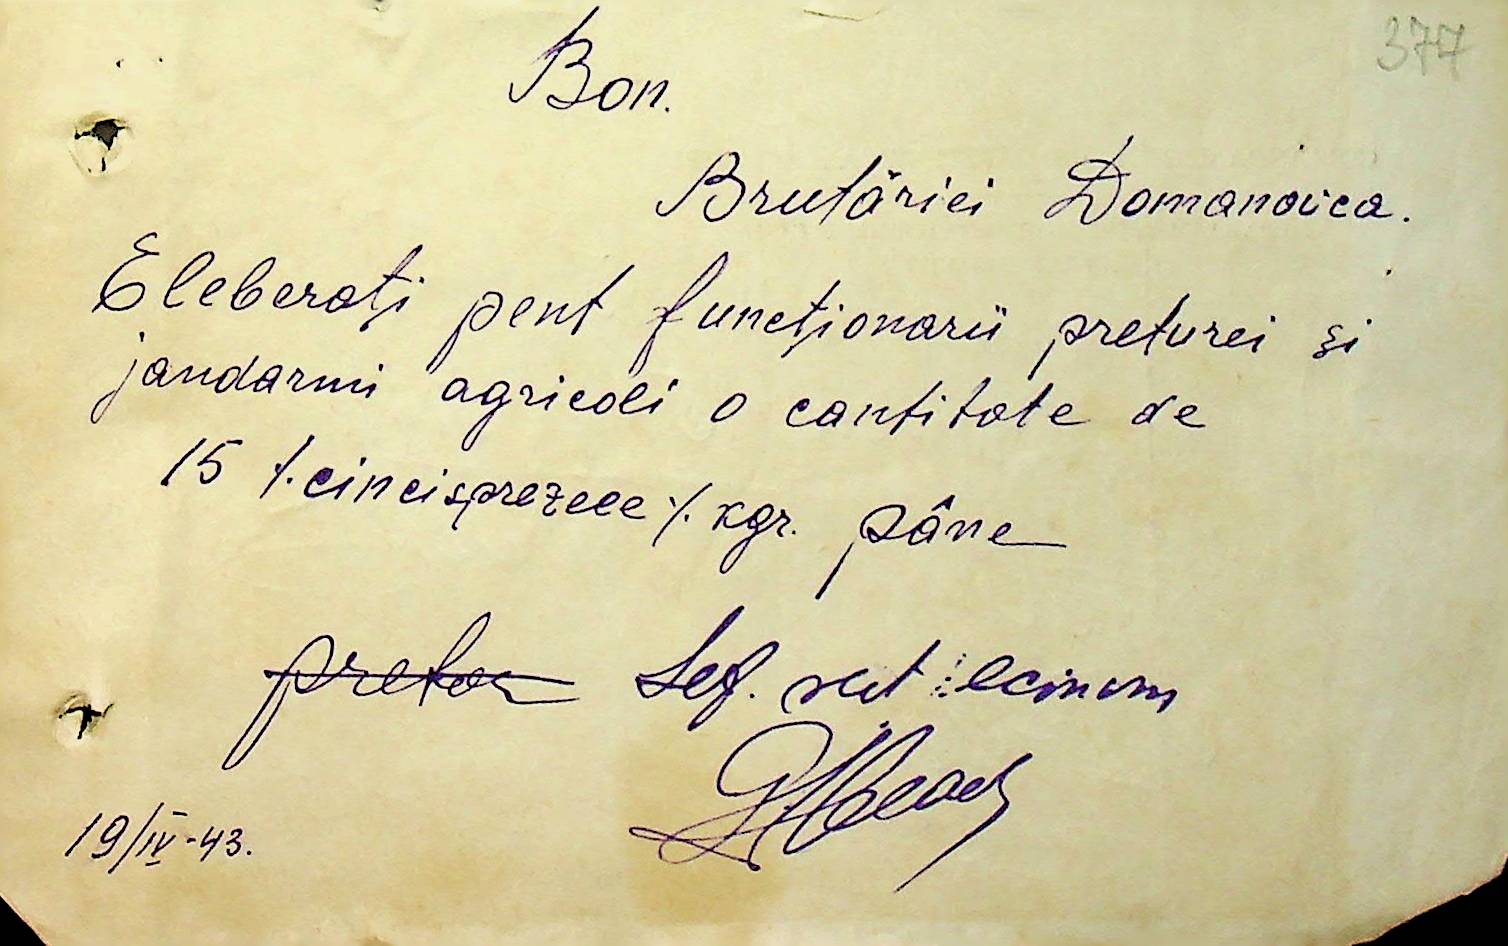 377
Bon.
Brutăriei Domanovca.
Eleberați pent funcționarii preturei și
jandarmi agricoli o cantitate de
15 ⁒ cincisprezece ⁒ kgr. pâne
pretor Șef.
19/IV-43.